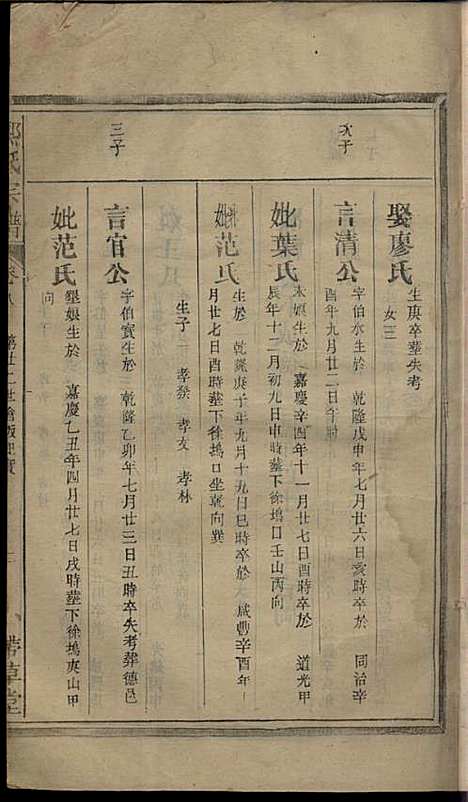 娶廖氏
生庚卒塟失考
女三
次子
言清公
字伯水生於 乾隆戊申年七月廿六日亥時卒於 同治辛
酉年九月廿二日午時
妣葉氏
木娘生於 嘉慶辛酉年十一月廿七日酉時卒於 道光甲
辰年十二月初九日申時塟下徐塢口壬山丙向
妣范氏
生於 乾隆庚子年九月十九日巳時卒於 咸豐辛酉年
月廿七日酉時塟下徐塢口坐乾向巽
生子三 孝癸 孝友 孝林
三子
言官公
字伯賓生於 乾隆乙卯年七月廿三日丑時卒失考葬德邑
妣范氏
墾娘生於 嘉慶乙丑年四月廿七日戌時塟下徐塢庚山甲
向
氏宗譜
卷八
草堂